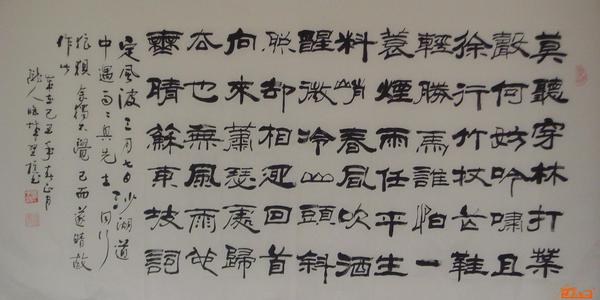 莫聽穿林打葉
聲何妨吟嘯且
徐行竹杖芒鞋
輕勝馬誰怕一
蓑煙雨任平生
料峭春風吹酒
醒微冷山頭斜
却相迎回首
向來蕭瑟處歸
去也無風雨也
晴蘇東坡詞
定風波三月七日沙湖道
中遇雨〻具先去同行
狼狽余獨不覺已而遂晴故
作此
歲在己丑年春正月